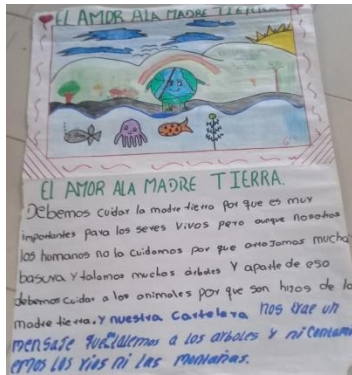 EL AMOR ALA MADRE TIERRA
EL AMOR ALA MADRE TIERRA.
Debemos cuidar la madre tierra por que es muy
importantes para los seres vivos pero aunque nosotros
los humanos no la cuidamos por que arrojamos mucha
basura y talamos muchos árboles y aparte de eso
debemos cuidar a los animales por que son hijos de la
madre tierra. y nuestra cartelera nos trae un
mensaje que a los arboles y ni
los rios ni las montañas.